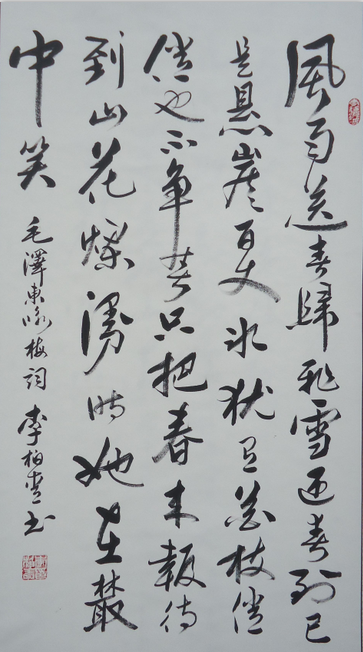 風雨送春歸飛雪迎春到已
是悬崖百丈冰犹有花枝俏
俏也不争春只把春来報待
到山花爛漫时她在叢
中笑 毛澤東咏梅詞 李柏青书